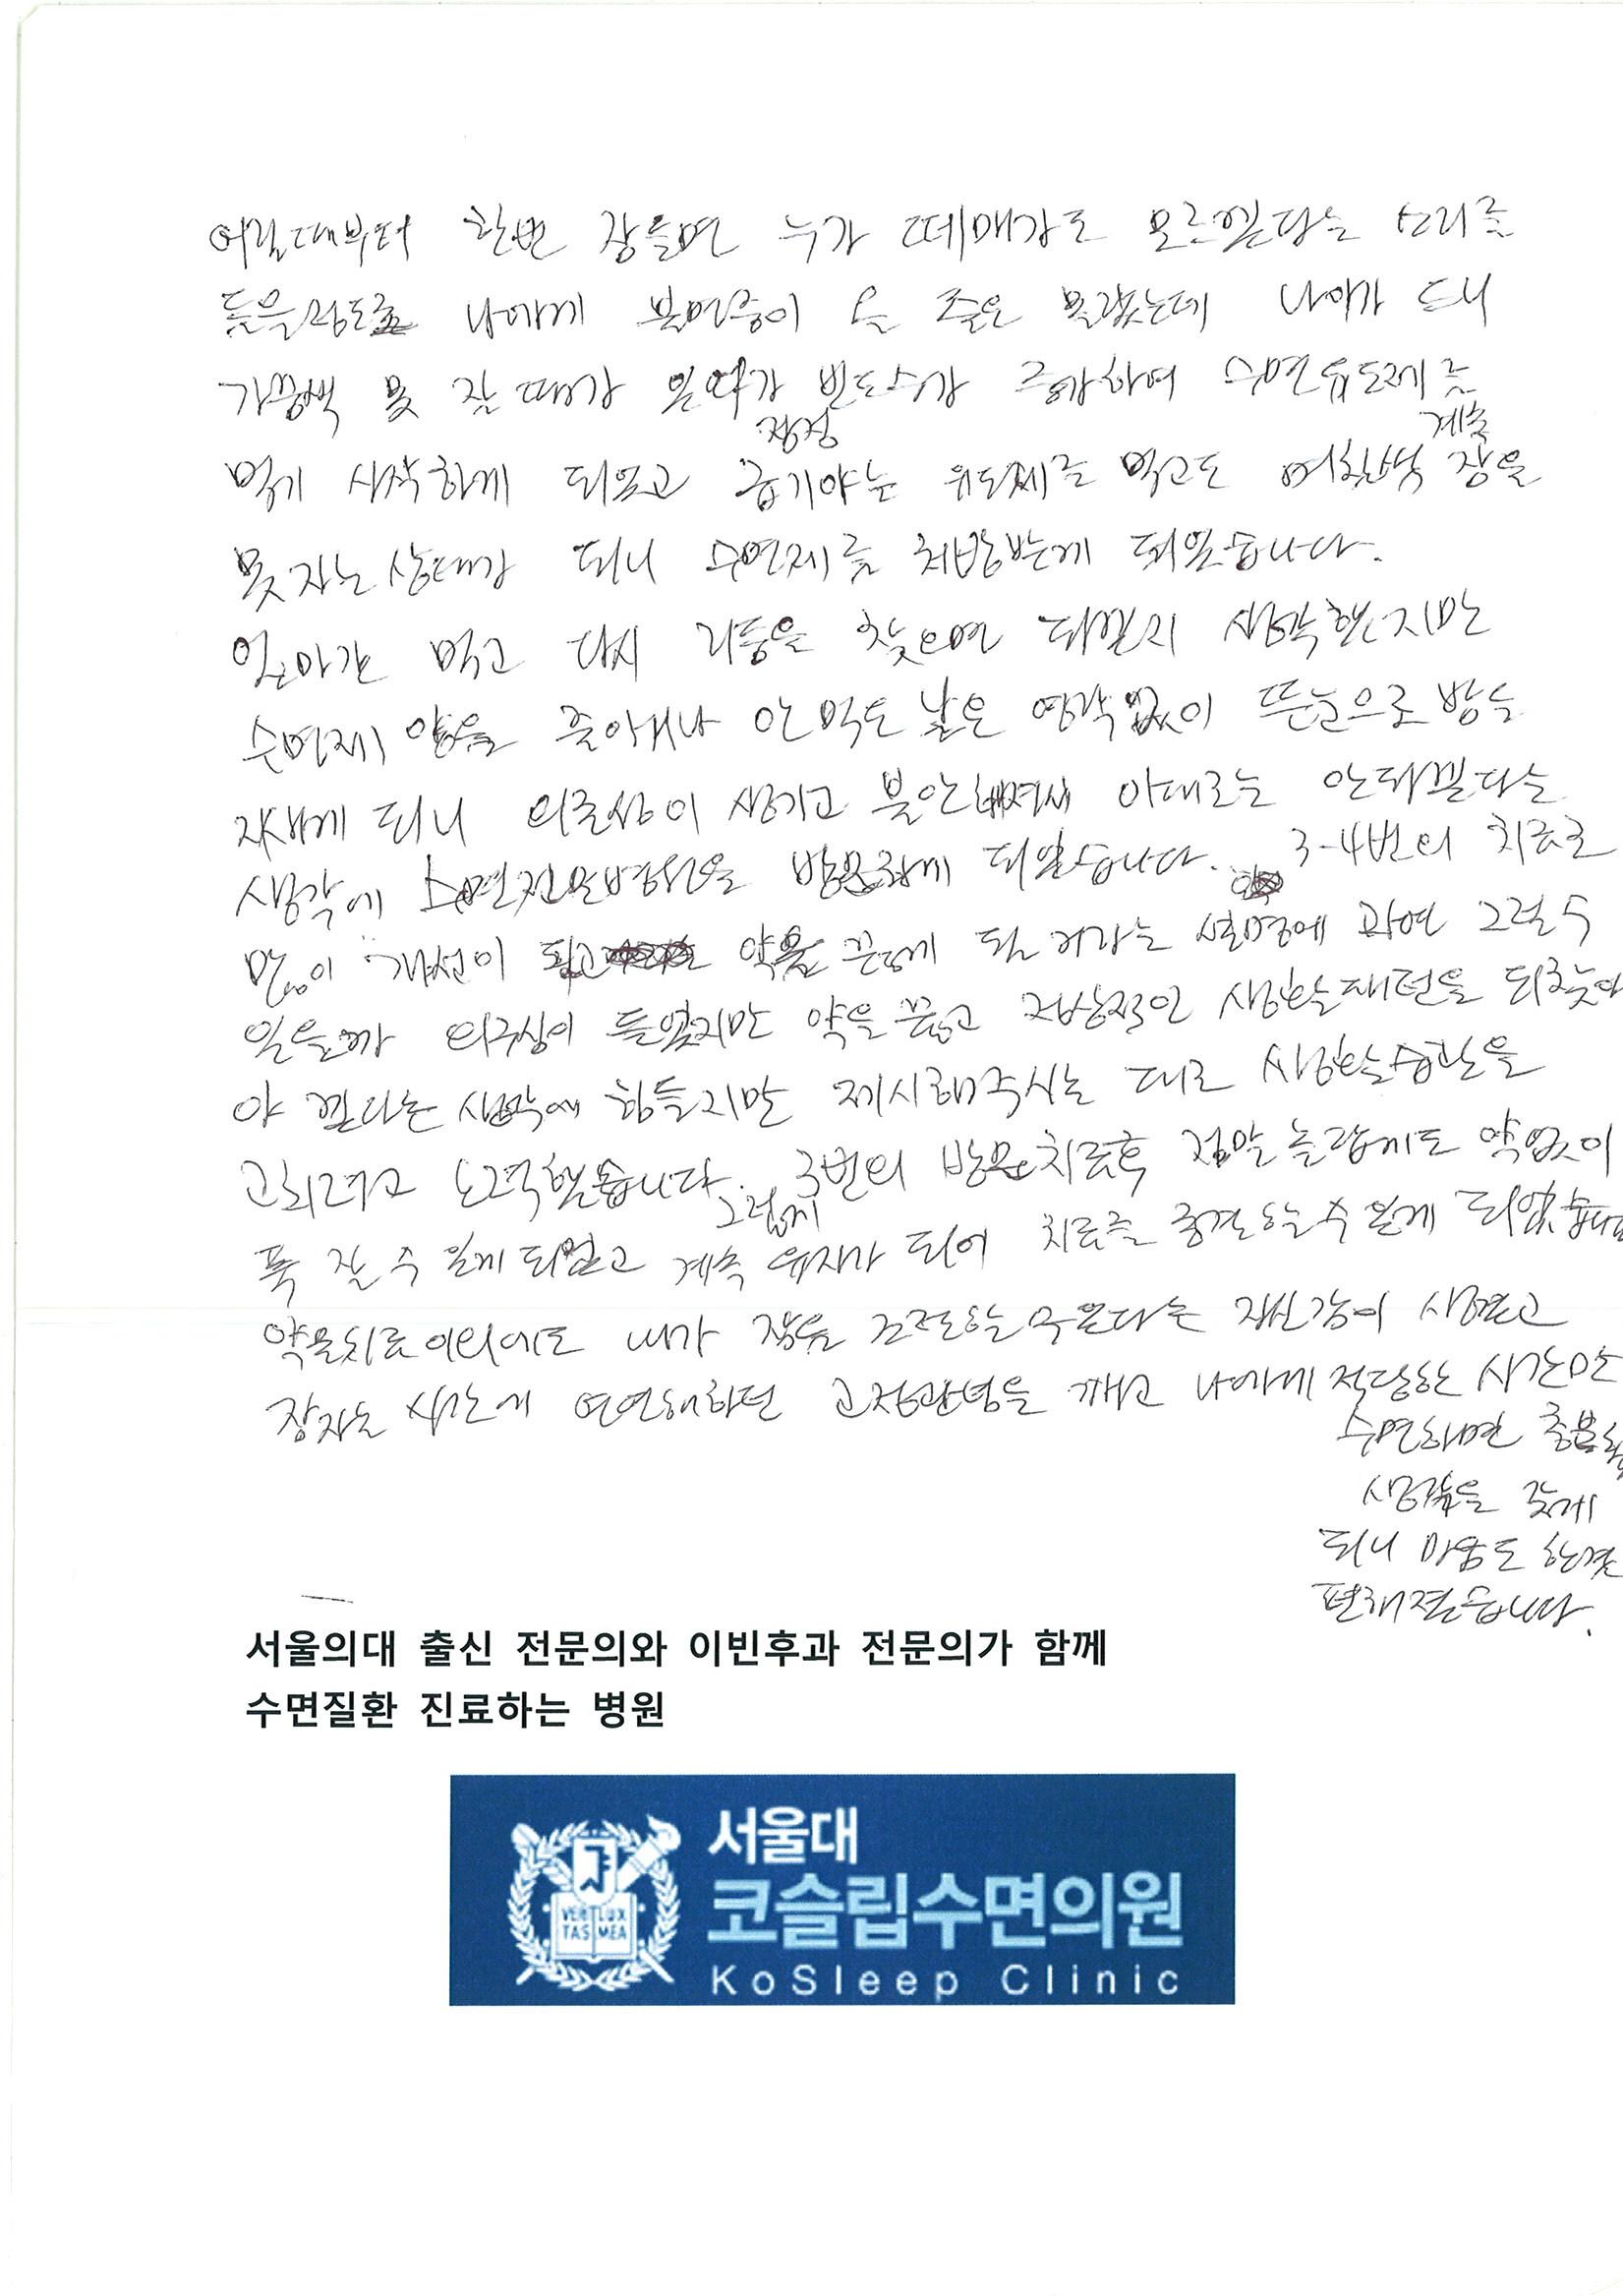 어릴때부터 한번 잠들면 누가 떼매가도 모르겠다는 소리를
들을정도로 나에게 불면증이 올 줄은 몰랐는데 나이가 드니
가끔씩 못 잘 때가 있다가 빈도수가 증가하여 수면유도제를
먹기 시작하게 되었고 점점 급기야는 유도제를 먹고도 며칠씩 계속 잠을
못자는 상태가 되니 수면제를 처방받게 되었습니다.
얼마간 먹고 다시 리듬을 찾으면 되겠지 생각했지만
수면제 양을 줄이거나 안 먹는 날은 영락없이 뜬눈으로 밤을
지새게 되니 의존성이 생기고 불안해져서 이대로는 안되겠다는
생각에 수면전문병원을 방문하게 되었습니다. 3-4번의 치료로
많이 개선이 되고 약을 끊게 될거라는 설명에 과연 그럴 수
있을까 의구심이 들었지만 약을 끊고 정상적인 생활패턴을 되찾아
야 겠다는 생각에 힘들지만 제시해주시는 대로 생활습관을
고치려고 노력했습니다. 3번의 방문치료후 정말 놀랍게도 약없이
푹 잘 수 있게 되었고 그렇게 계속 유지가 되어 치료를 종결하는수 있게 되었습니다
약물치료 이외에도 내가 잠을 조절하는수있다는 자신감이 생겼고
잠자는 시간에 연연해하던 고정관념을 깨고 나에게 적당한 시간만
수면하면 충분하
생각을 갖게
되니 마음도 한결
편해졌습니다.
서울의대 출신 전문의와 이빈후과 전문의가 함께
수면질환 진료하는 병원
서울대
코슬립수면의원
KoSleep Clinic
VERI LUX
TAS MEA